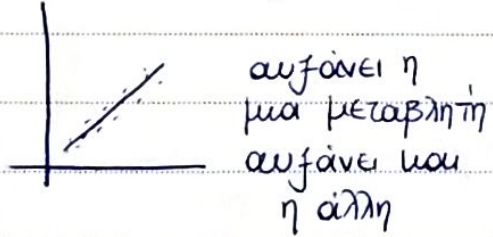 αυξάνει η
μια μεταβλητή
αυξάνει και
η άλλη